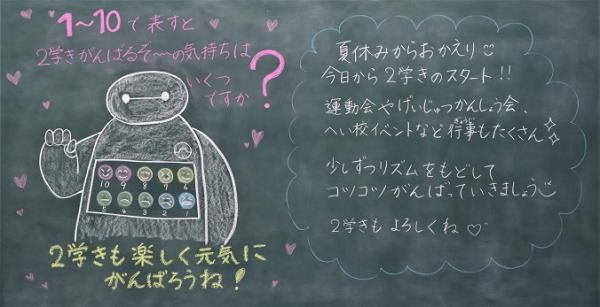 1〜10で表すと
2学きがんばるぞ〜〜の気持ちは
いくつ
ですか?
10 9 8 7 6
5 4 3 2 1
2学きも楽しく元気に
がんばろうね!
夏休みからおかえり
今日から2学きのスタート!!
運動会やげいじゅつかんしょう会、
へい校イベントなど行事もたくさん
ぎょうじ
少しずつリズムをもどして
コツコツがんばっていきましょう
2学きも よろしくね♡